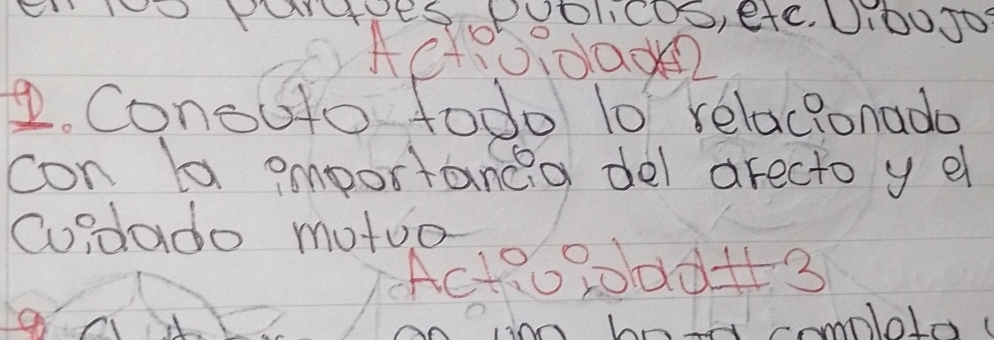 en los parques públicos, etc. Dibujos
Actividad#2
1. Consulto todo lo relacionado
con la importancia del afecto y el
cuidado mutuo
Actividad#3
en una hoja completa